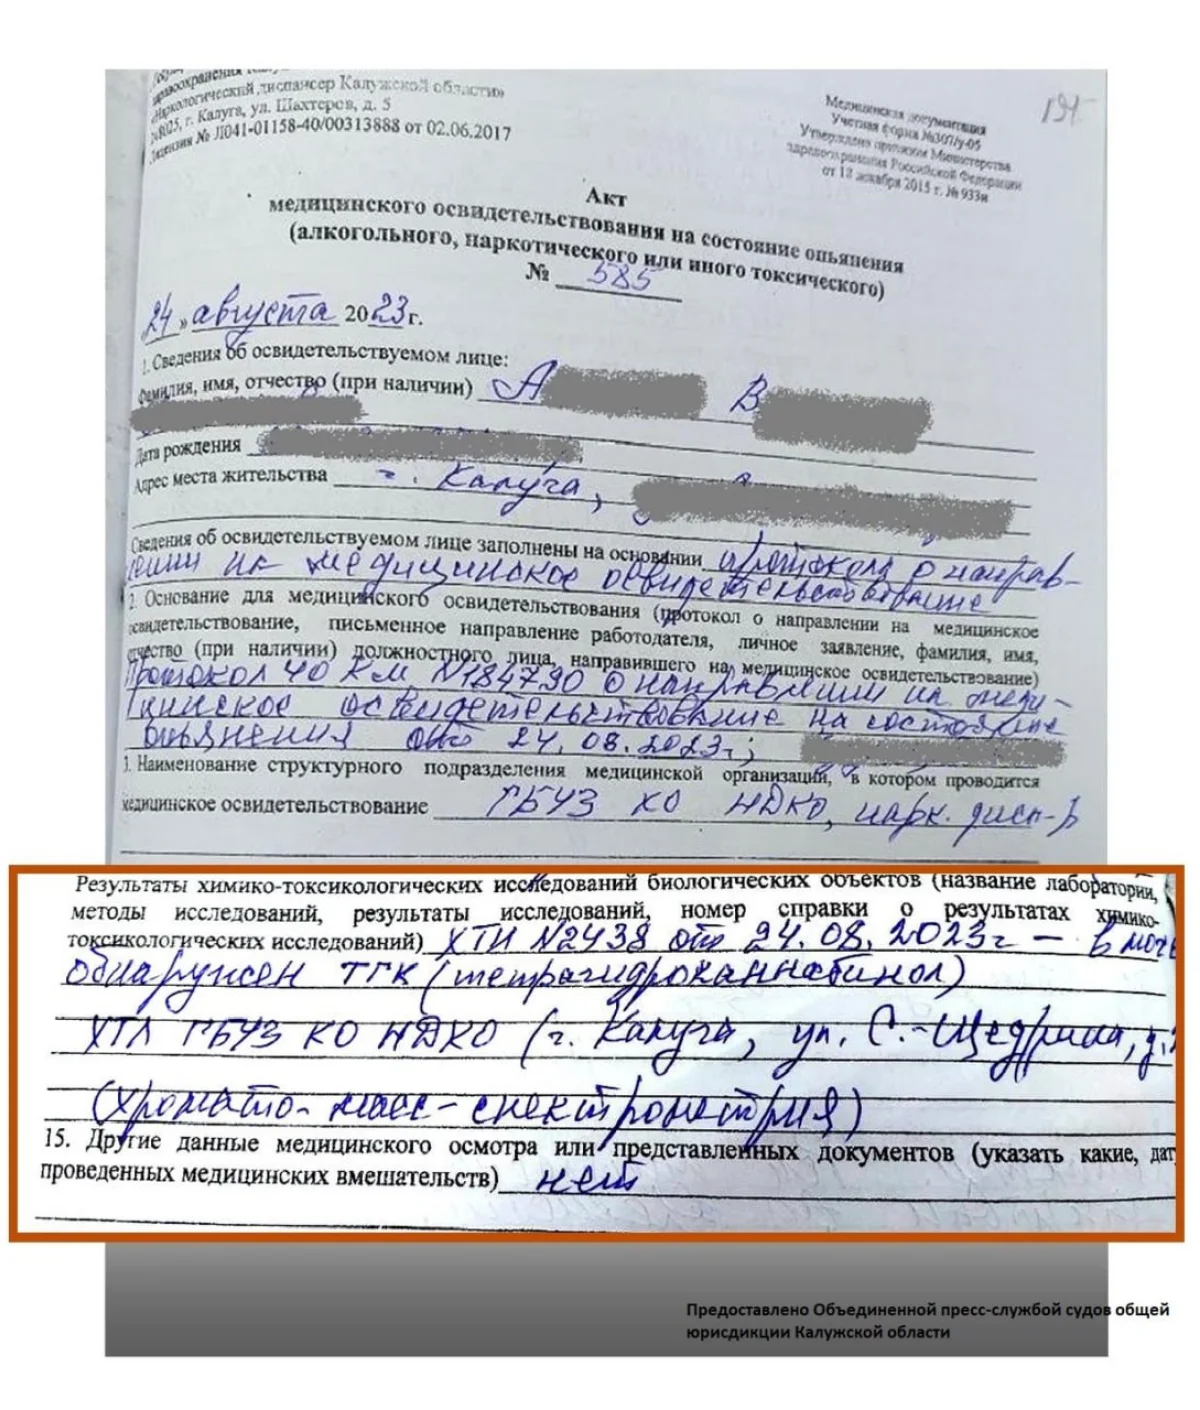 здравоохранения
«Наркологический диспансер Калужской области»
248025, г. Калуга, ул. Шахтеров, д. 5
Лицензия № Л041-01158-40/00313888 от 02.06.2017
Медицинская документация
Учетная форма №307/у-05
Утверждена приказом Министерства
здравоохранения Российской Федерации
от 18 декабря 2015 г. № 933н
Акт
медицинского освидетельствования на состояние опьянения
(алкогольного, наркотического или иного токсического)
№ 585
24 » августа 2023 г.
1. Сведения об освидетельствуемом лице:
Фамилия, имя, отчество (при наличии) А В
Дата рождения
Адрес места жительства г. Калуга,
Сведения об освидетельствуемом лице заполнены на основании протокола о направ-
лении на медицинское освидетельствование
2. Основание для медицинского освидетельствования (протокол о направлении на медицинское
освидетельствование, письменное направление работодателя, личное заявление, фамилия, имя,
отчество (при наличии) должностного лица, направившего на медицинское освидетельствование)
Протокол 40 КМ N184790 о направлении на меди-
цинское освидетельствование на состояние
опьянения от 24.08.2023г;
3. Наименование структурного подразделения медицинской организации, в котором проводится
медицинское освидетельствование ГБУЗ КО НДКО, нарк. дисп-р
Результаты химико-токсикологических исследований биологических объектов (название лаборатории,
методы исследований, результаты исследований, номер справки о результатах химико-
токсикологических исследований) ХТИ N2438 от 24.08.2023г – в моче
обнаружен ТГК (тетрагидроканнабинол)
ХТЛ ГБУЗ КО НДКО (г. Калуга, ул. С.-Щедрина, д.
(хромато-масс-спектрометрия)
15. Другие данные медицинского осмотра или представленных документов (указать какие, дат
проведенных медицинских вмешательств) нет
Предоставлено Объединенной пресс-службой судов общей
юрисдикции Калужской области